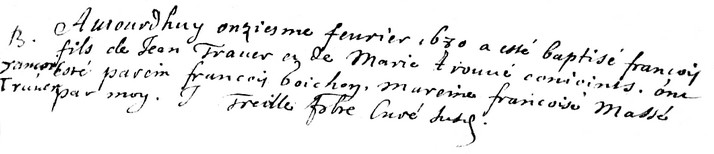 B. Aujourdhuy onziesme feurier 1630 a esté baptisé francois
fils de Jean Trauer et de Marie trouué conioints. ont
francois esté parein francois boichon, mareine francoise Massé
Trauer par moy. J Treille pbre Curé susd.